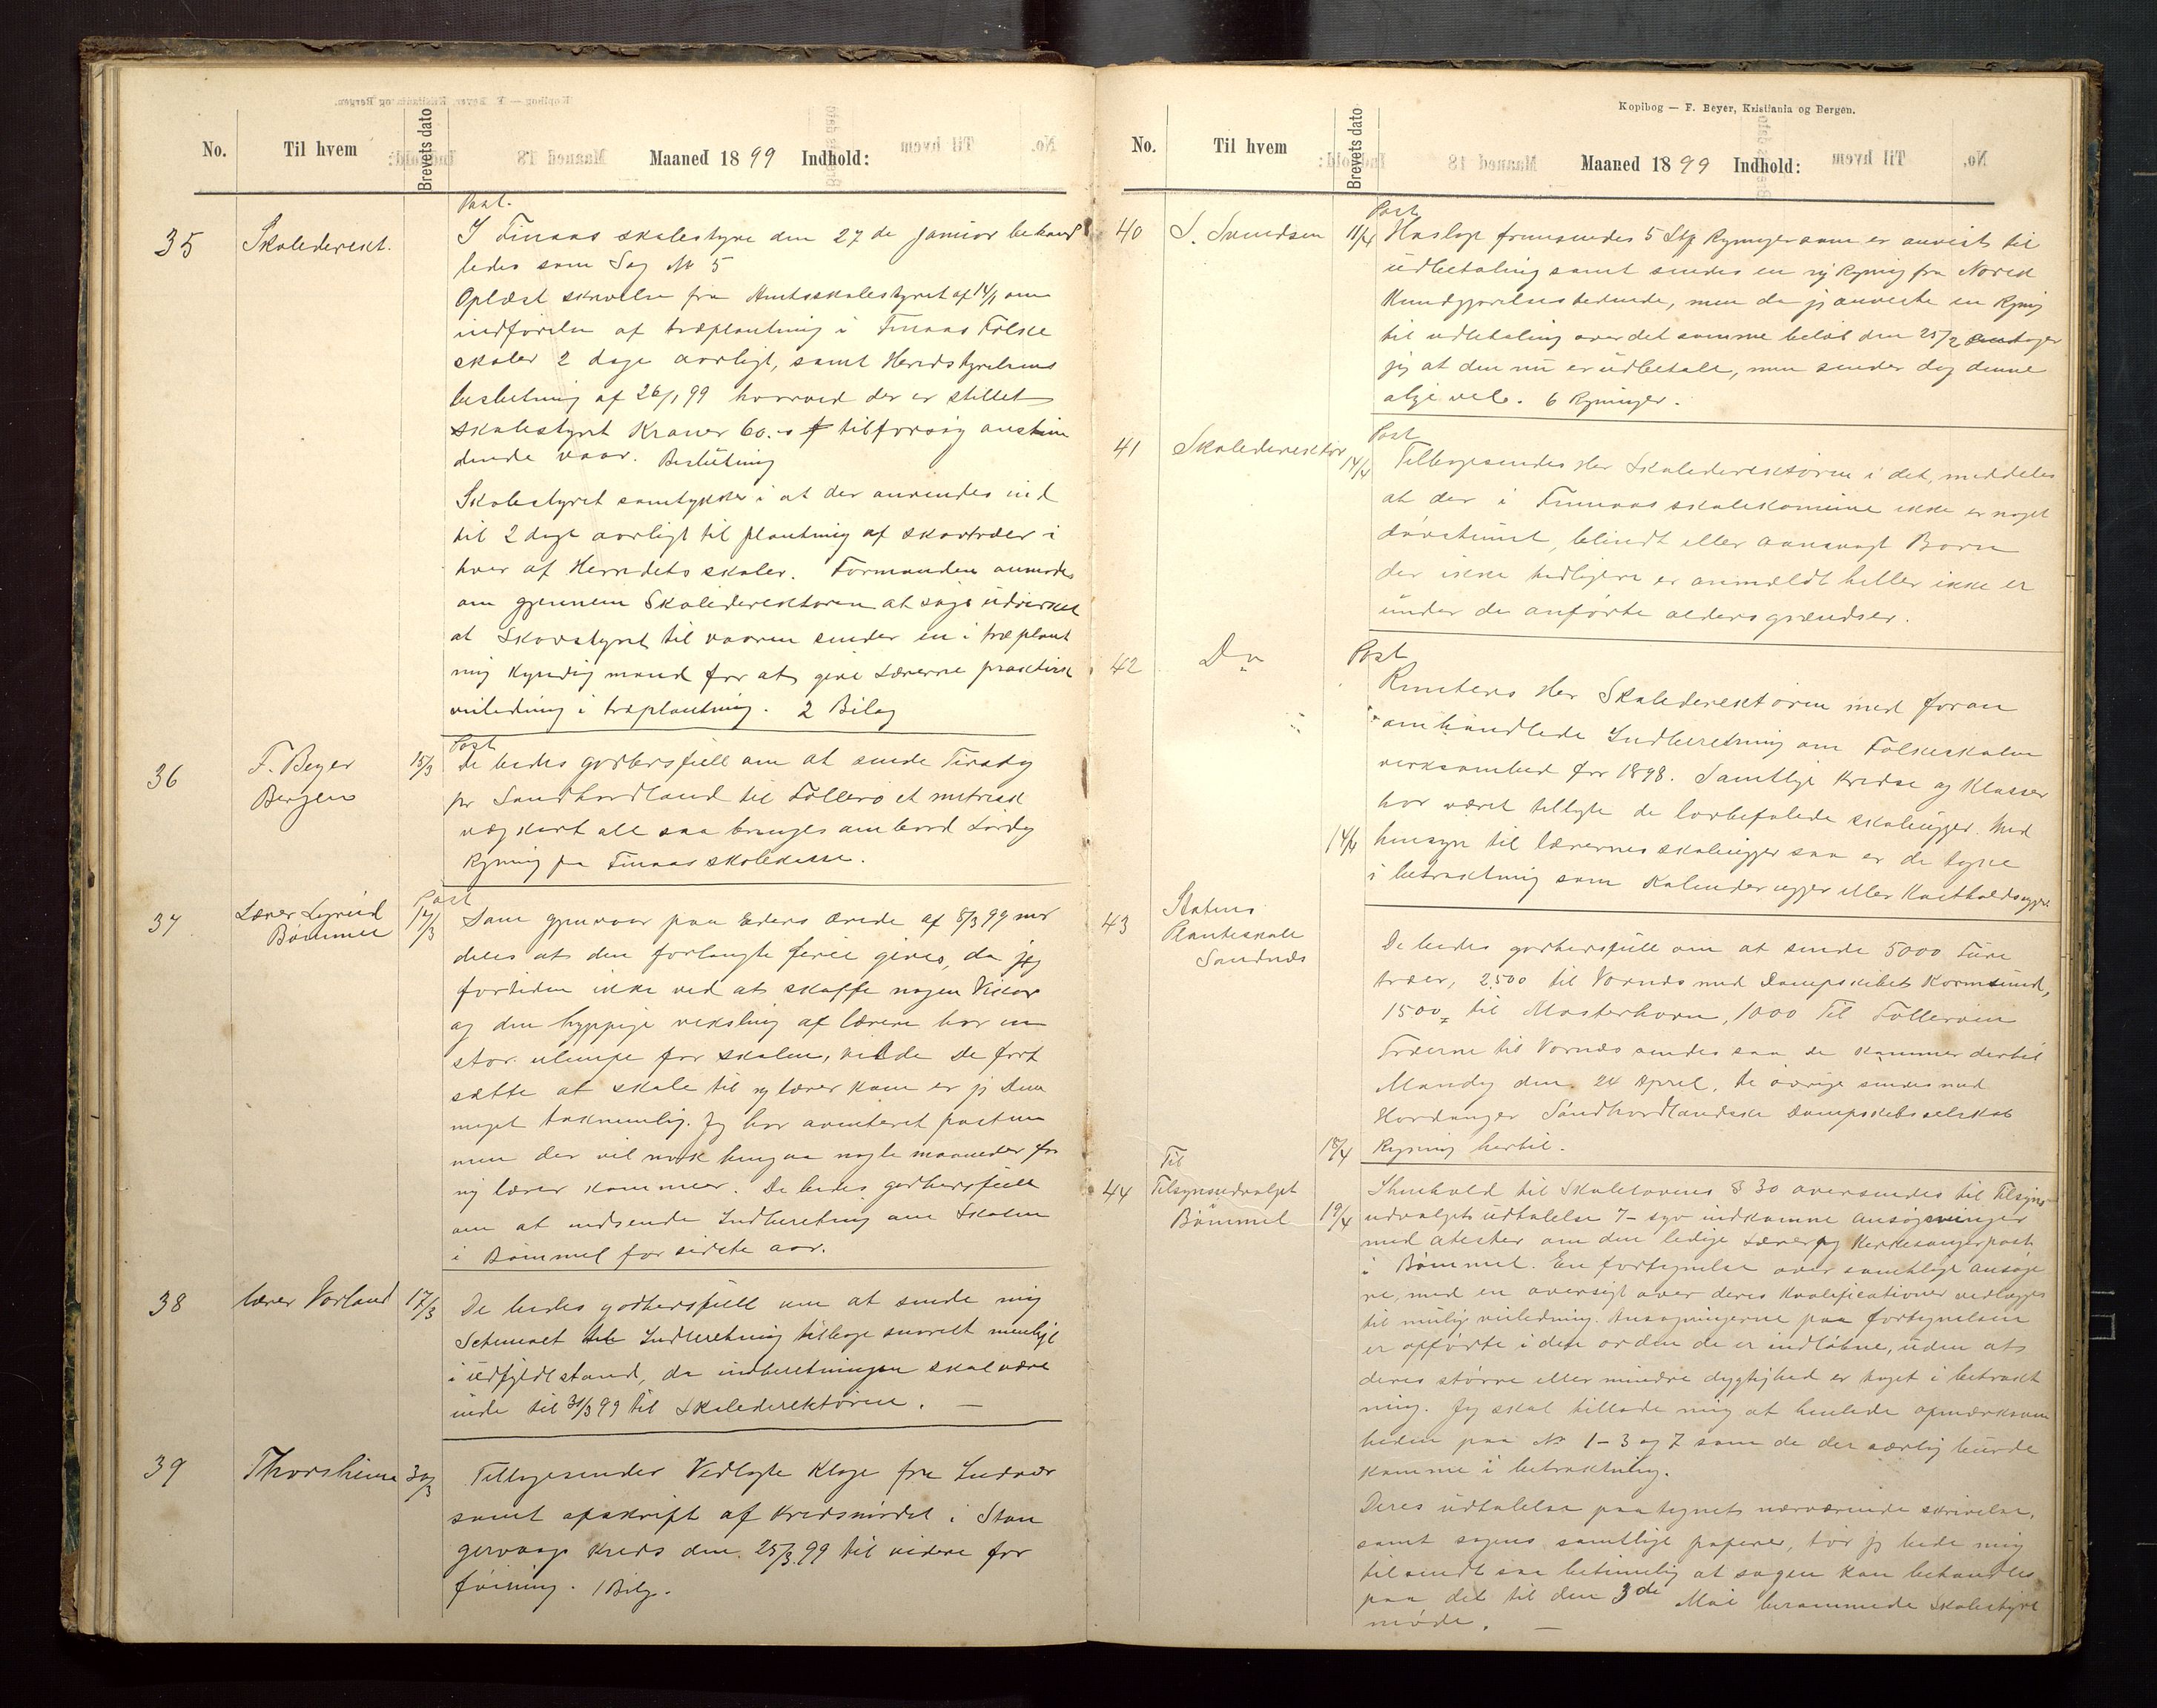 No. Til hvem Brevets dato Maaned 1899 Indhold:
Post.
35 Skoledirekt. I Finaas skolestyre den 27de januar behand
ledes som Sag № 5
Oplæst skrivelse fra Amtsskolestyret af 14/1 om
indførelse af træplantning i Finaas Folke
skoler 2 dage aarligt, samt Heredstyrelsens
beslutning af 26/1 99 hvorved der er stillet
skolestyret Kroner 60.00 til forsøg
dende vaar. Beslutning
Skolestyret samtykker i at der anvendes ind
til 2 dage aarligt til plantning af skovtræer i
hver af Herredets skoler. Formanden anmodes
om gjennem Skoledirektøren at søge udvirket
at Skovstyret til vaaren sender en i træplant
ning kyndig mand for at give Lærerne praktisk
veiledning i træplantning. 2 Bilag
36 F. Beyer
Bergen 15/3 Post
De bedes godhedsfuld om at sende Tirsdag
pr Søndhordland til Folleró et metrisk
vægkart alt saa bringes ombord Lørdag
Regning paa Finaas skolekasse.
37 Lærer
Bømmel Post
14/3 Som gjensvar paa Eders ærede af 8/3 99 med
deles at den forlangte ferie gives, da jeg
fortiden ikke ved at skaffe nogen Vikar
og den hyppige veksling af lærere har en
stor ulempe for skolen, vilde De fort
sætte at skole til ny lærer kom er jeg Dem
meget taknemlig. Jeg har averteret posten
men der vil nok hengaa nogle maaneder før
ny lærer kommer. De bedes godhedsfuld
om at indsende Indberetning om Skolen
i Bømmel for sidste aar.
38 lærer Vorland 17/3 De bedes godhedsfuld om at sende mig
Schemaet til Indberetning tilbage snarest muligt
i udfyldt stand, da indberetningen skal være
inde til 31/3 99 til Skoledirektøren. —
39 Thorsheim 30/3 Tilbagesender Vedlagte Klage fra
samt afskrift af Kredsmødet i Stan
gervaag Kreds den 25/3 99 til videre for
føining. 1 Bilg.
Kopibog — F. Beyer, Kristiania og Bergen.
No. Til hvem Brevets dato Maaned 1899 Indhold:
Post
40 S. Svendsen 11/4 Hoslagt fremsendes 5 Stk Regninger som er anvist til
udbetaling samt sendes en ny Regning fra Norsk
Kundgjørelsestidende, men da jeg anviste en Regning
til udbetaling over det samme beløb den 25/2 antager
jeg at den nu er udbetalt, men sender dog denne
alge vel. 6 Regninger.
Post
41 Skoledirektør 14/4 Tilbagesendes Her Skoledirektøren i det meddeles
at der i Finnaas skolekomune ikke er noget
døvstumt, blindt eller aandsvagt Barn
der ikke tidligere er anmeldt heller ikke er
under de anførte aldersgrændser.
42 Do Post
Remiteres Her Skoledirektøren med foran
omhandlede Indberetning om Folkeskolen
virksomhed for 1898. Samtlige Kredse og Klasser
har været tillagte de lovbefalede skoleuger. Med
14/4 hensyn til lærernes skoleuger saa er de tagne
i betraktning som Kalender uger eller Kostholdsuger.
43 Statens
Planteskole
Sandnæs De bedes godhedsfuld om at sende 5000 Furu
træer, 2500 til Vornæs med Dampskibet Karmsund,
1500 til Mosterhavn, 1000 Til Folleróen
Træerne til Vornæs sendes saa de kommer dertil
Mandag den 24 April, de øvrige sendes med
Hardanger Søndhordlandske Dampskibsselskab
18/4 Regning hertil.
44 Til
Tilsynsudvalget
Bømmel 19/4 I henhold til Skolelovens § 30 oversendes til Tilsyns-
udvalgets udtalelse 7 – syv indkomne Ansøgninger
med atester om den ledige Lærer og Kirkesangerpost
i Bømmel. En fortegnelse over samtlige Ansøge
re, med en oversigt over deres Kvalificationer vedlægges
til mulig veiledning. Ansøgningerne paa fortegnelsen
er opførte i den orden de er indløbne, uden at
deres større eller mindre dygtighed er taget i betrakt
ning. Jeg skal tillade mig at henlede opmærksom
heden paa № 1 – 3 og 7 som de der særlig burde
komme i betraktning.
Deres udtalelse paategnet nærværende skrivelse,
samt sagens samtlige papirer, tør jeg bede mig
tilsendt saa betimelig at sagen kan behandles
paa det til den 3de Mai berammede Skolestyre
møde. —